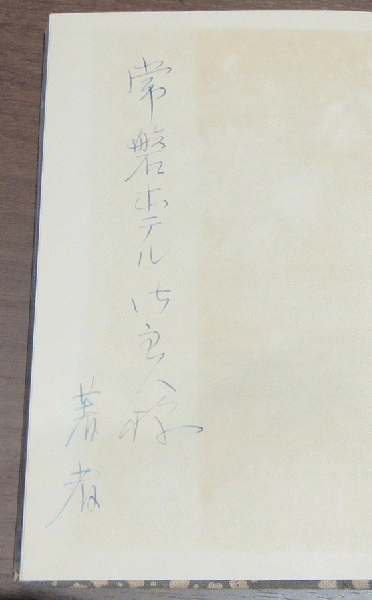 常磐ホテル御主人様
著者